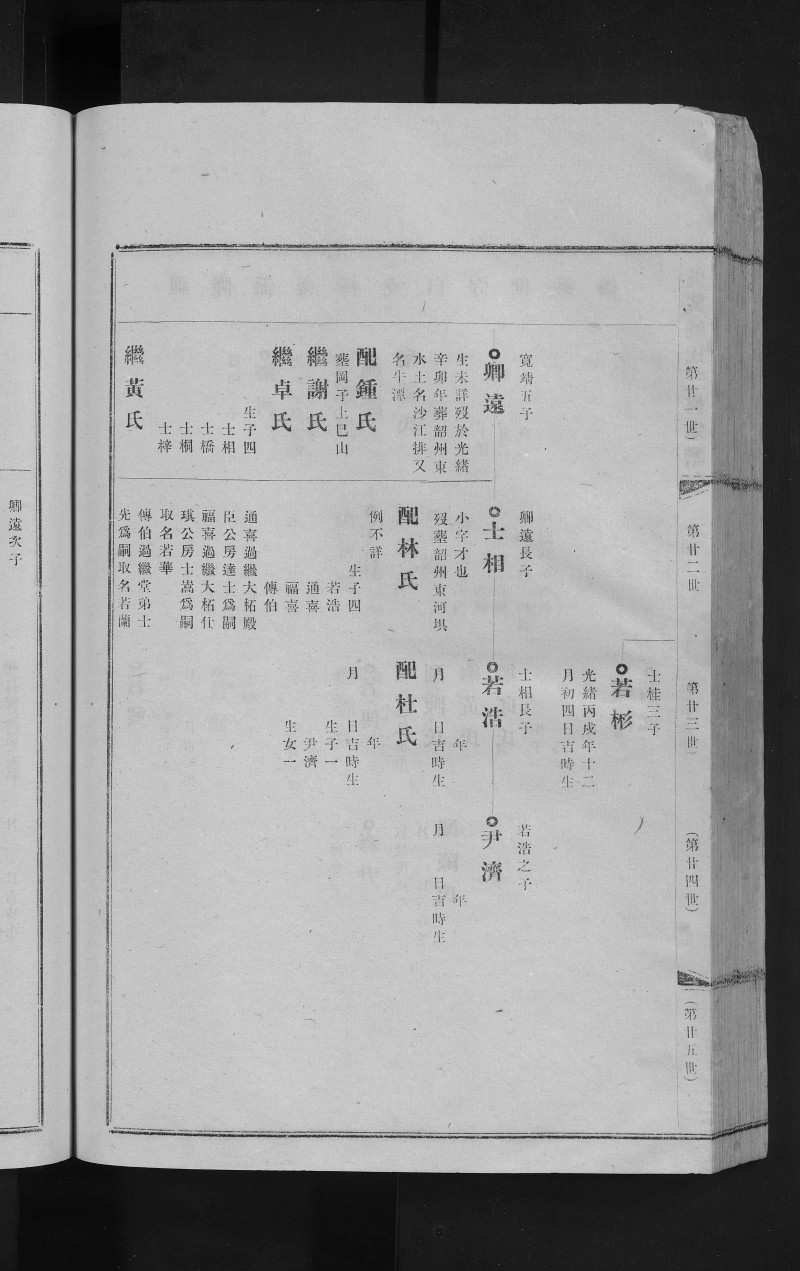 第廿一世)
第廿二世
第廿三世
(第廿四世)
(第廿五世)
士桂三子
若彬
光緒丙戌年十二
月初四日吉時生
寬靖五子
卿遠
生未詳歿於光緒
辛卯年葬韶州東
水土名沙江排又
名牛潭
配鍾氏
葬岡子上巳山
繼謝氏
繼卓氏
生子四
士相
士橋
士桐
士梓
繼黃氏
卿遠長子
士相
小字才也
歿葬韶州東河垻
配林氏
例不詳
生子四
若浩
通喜
福喜
傳伯
通喜過繼大柘殿
臣公房達士爲嗣
福喜過繼大柘仕
琪公房士嵩爲嗣
取名若華
傳伯過繼堂弟士
先爲嗣取名若蘭
士相長子
若浩
年
月 日吉時生
配杜氏
年
月 日吉時生
生子一
尹濟
生女一
若浩之子
尹濟
年
月 日吉時生
卿遠次子